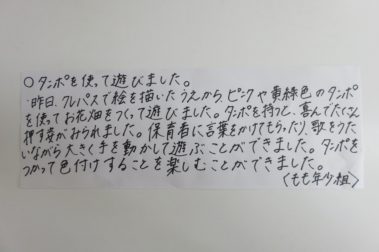 ○タンポを使って遊びました。
・昨日、クレパスで絵を描いたうえから、ピンクや黄緑色のタンポ
を使ってお花畑をつくって遊びました。タンポを持つと、喜んでたくさん
押す姿がみられました。保育者に言葉をかけてもらったり、歌をうた
いながら大きく手を動かして遊ぶことができました。タンポを
つかって色付けすることを楽しむことができました。
〈もも年少組〉